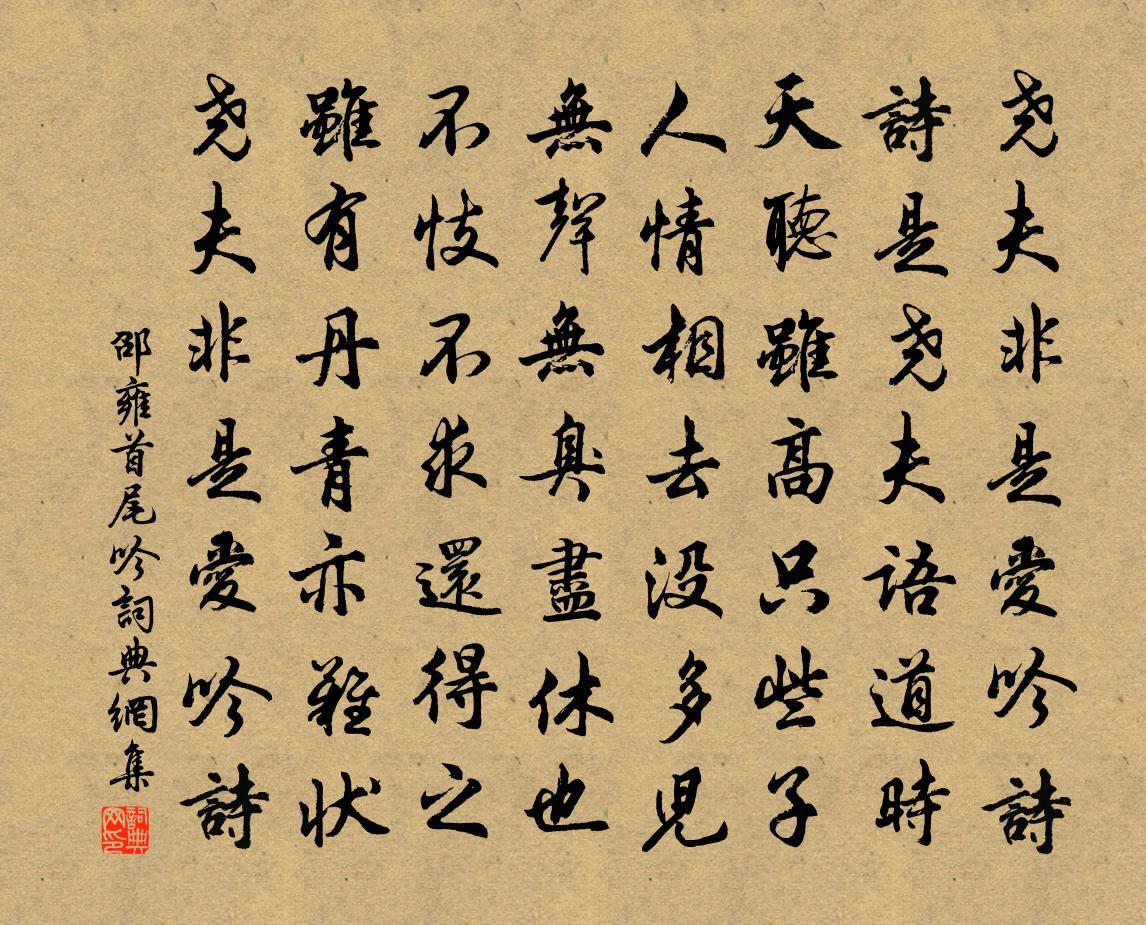 尧夫非是愛吟詩
詩是尧夫語道時
天聽雖高只些子
人情相去没多兒
無聲無臭盡休也
不忮不求還得之
雖有丹青亦難状
尧夫非是愛吟詩
邵雍首尾吟詞典網集
詞典网印